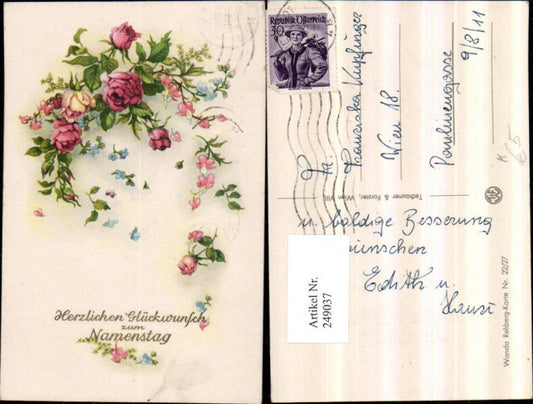 Herzlichen Glückwunsch
zum
Namenstag
Republik Österreich
30
g
Fr.
Franziska Kupfinger
Wien 18.
9/8/11
K
65
Tschauner & Forster, Wien VIII
u. baldige Besserung
wünschen
Edith u.
Hansi
Artikel Nr.
249037
Wanda Rehberg-Karte Nr. 22/27